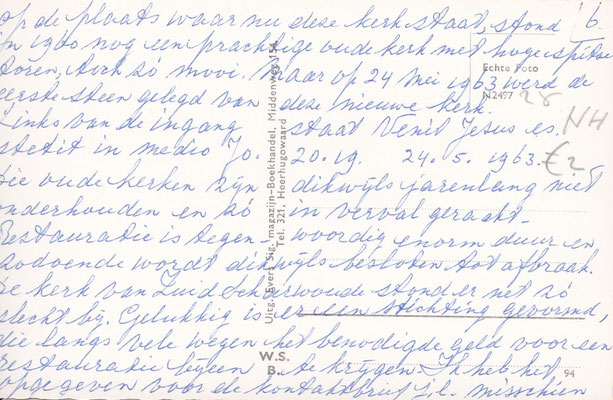 op de plaats waar nu deze kerk staat, stond 6
in 1960 nog een prachtige oude kerk met hoge spitse
toren, toch zó mooi. Maar op 24 Mei 1963 werd de
eerste steen gelegd van deze nieuwe kerk.
Links van de ingang staat Venit Jesus et
stetit in medio Jo. 20.19. 24.5.1963.
Die oude kerken zijn dikwijls jarenlang niet
onderhouden en zó in verval geraakt.
Restauratie is tegenwoordig enorm duur en
zodoende wordt dikwijls besloten tot afbraak.
De kerk van Zuid Scharwoude stond er net zó
slecht bij. Gelukkig is er een stichting gevormd,
die langs vele wegen het benodigde geld voor een
restauratie bijeen te krijgen. Ik heb het
opgegeven voor de kontaktbrief j.l. misschien
Echte Foto
N2497
28
NH
€2
Uitg. Evers Sig. magazijn-Boekhandel, Middenweg 154
Tel. 321, Heerhugowaard
W.S.
B.
94